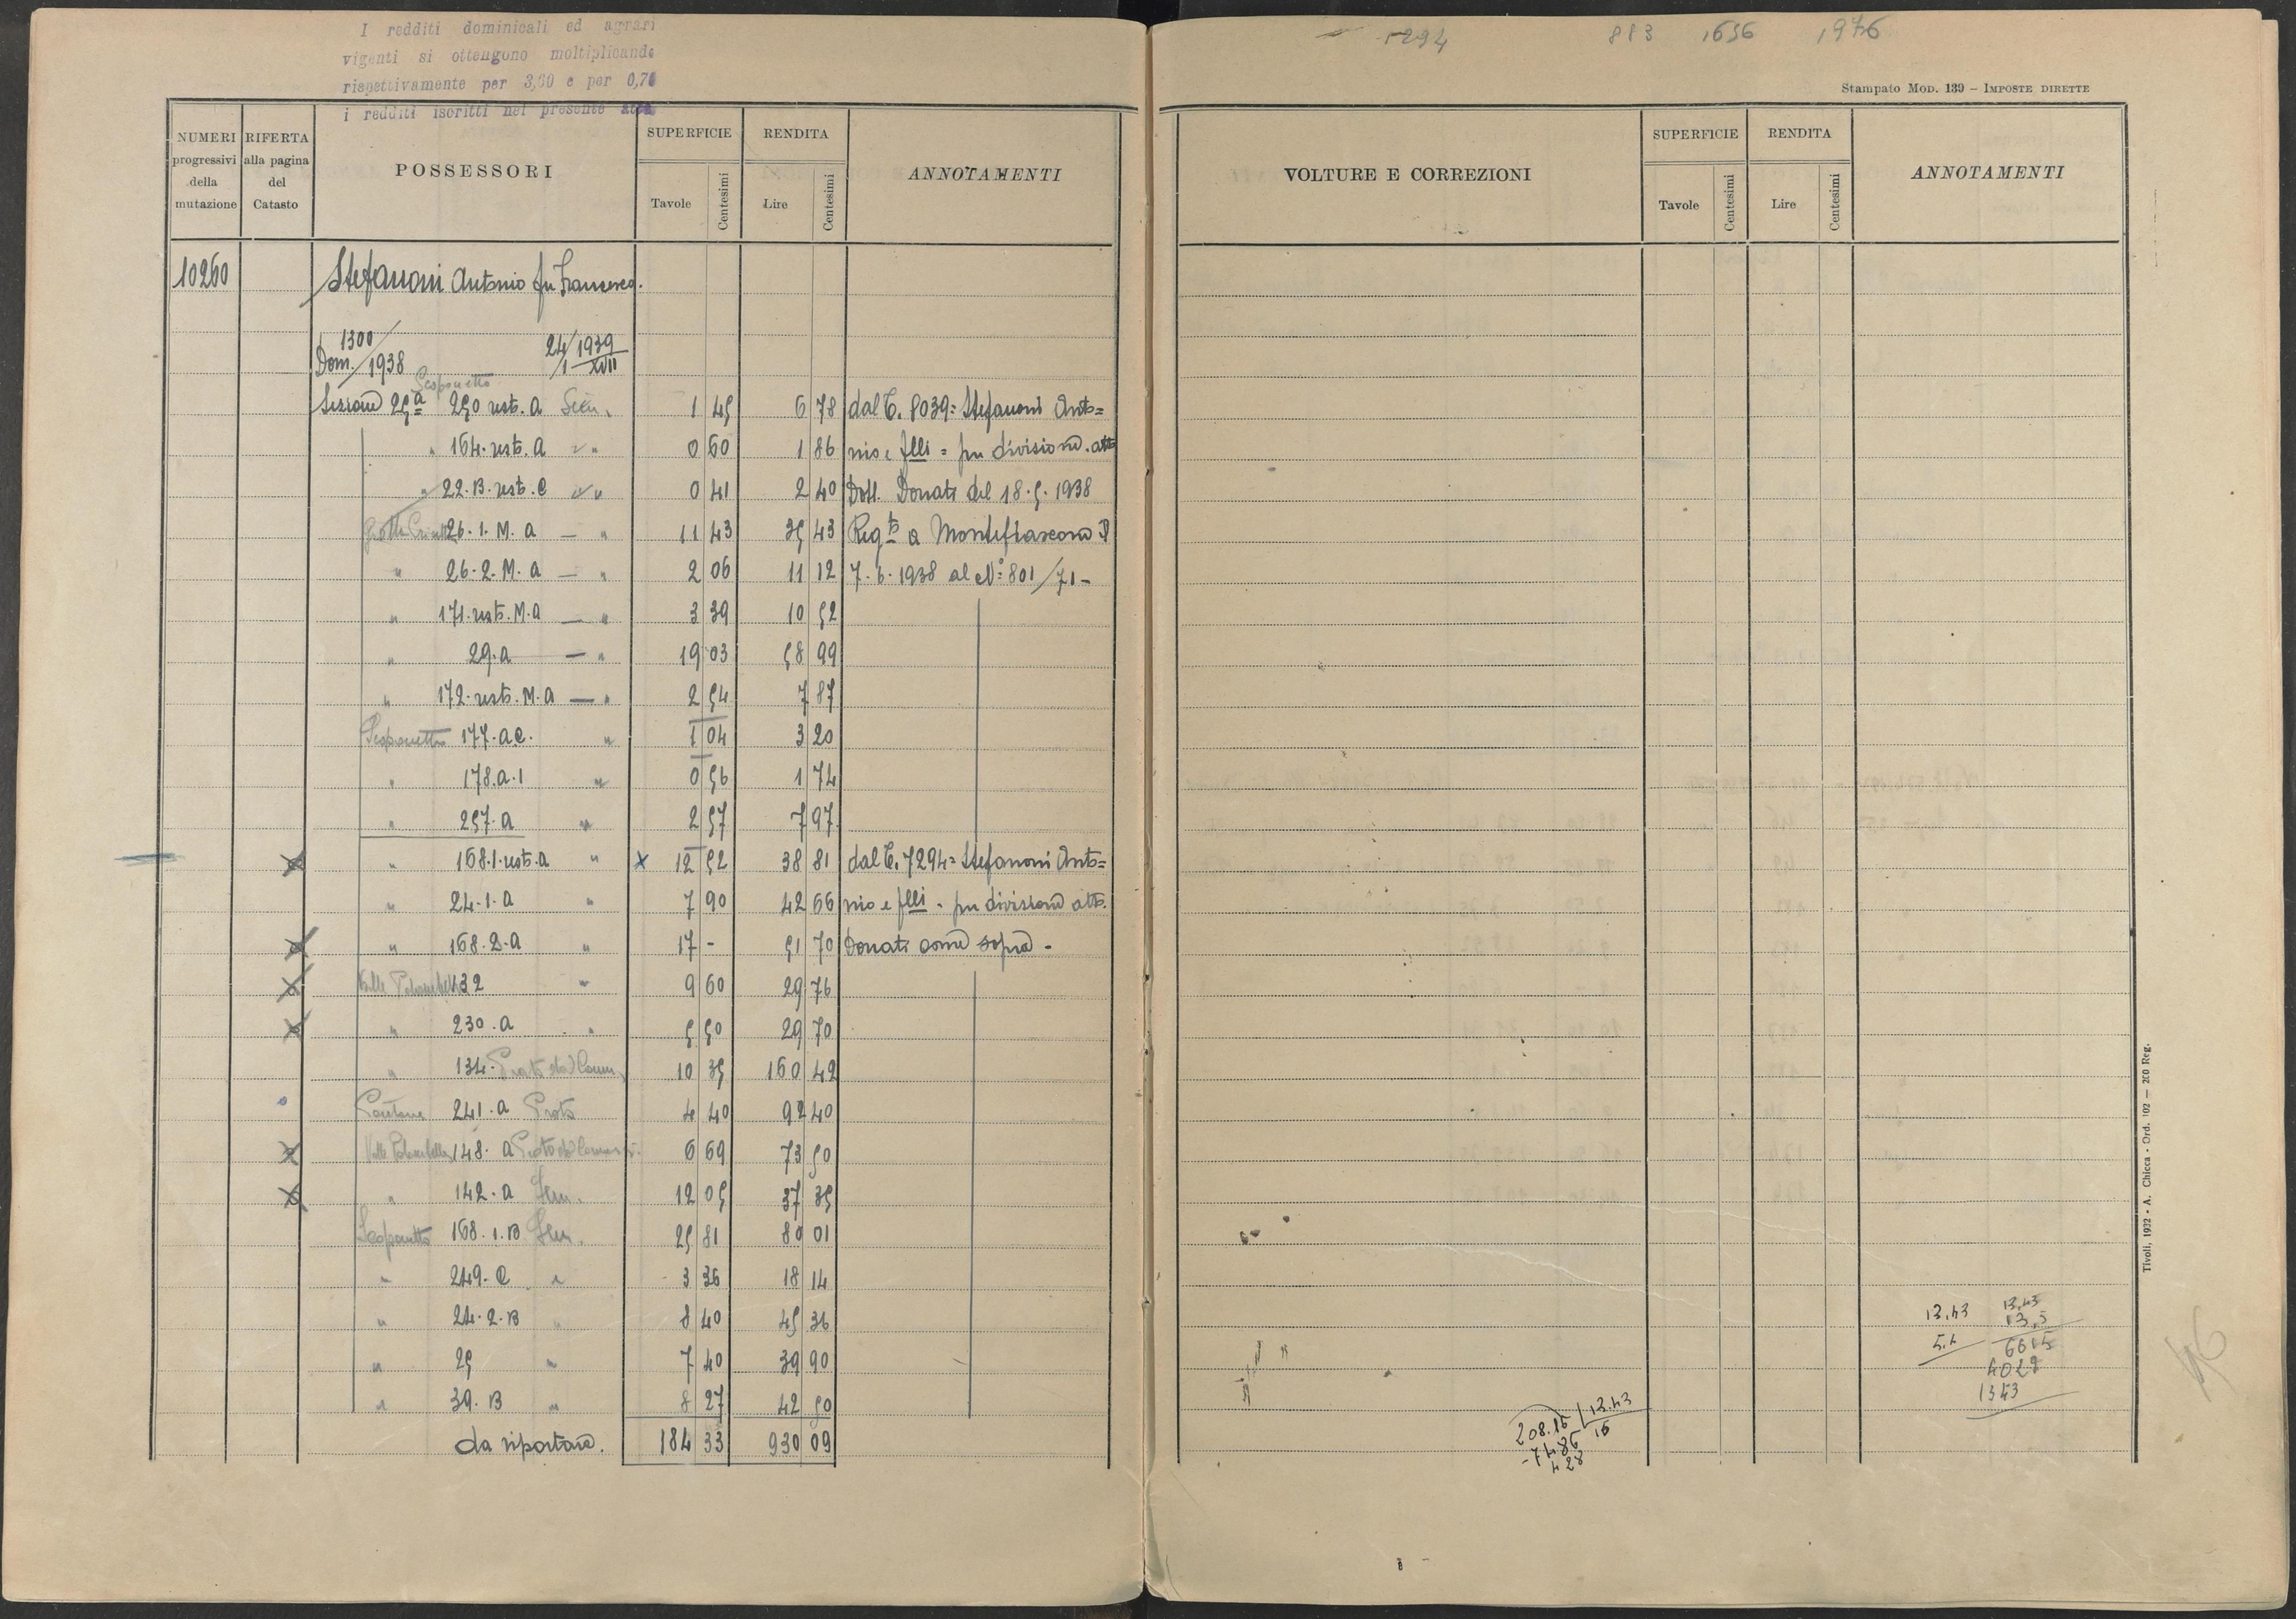 I redditi dominicali ed agrari
vigenti si ottengono moltiplicando
rispettivamente per 3,60 e per 0,70
i redditi iscritti nel presente atto
NUMERI progressivi della mutazione
RIFERTA alla pagina del Catasto
POSSESSORI
SUPERFICIE
Tavole Centesimi
RENDITA
Lire Centesimi
ANNOTAMENTI
10260 Stefanoni Antonio fu Francesco.
1300 24/1939
Dom./1938 1 XVII
Scoponetto
Sezione 25ª 250 rest. a Sem. 1 45 6 78 dal C. 8039= Stefanoni Anto=
" 164. rest. a " 0 60 1 86 nio e flli = per divisione. atto
" 22. B. rest. C " 0 41 2 40 Dott. Donati del 18.5.1938
26.1. M. a — " 11 43 35 43 Regto a Montefiascone il
" 26.2. M. a — " 2 06 11 12 7.6.1938 al N° 801/71-
" 171. rest. M. a — " 3 39 10 52
" 29. a — " 19 03 58 99
" 172. rest. M. a — " 2 54 7 87
Scoponetto 177. a C. " 1 04 3 20
" 178. a. 1 " 0 56 1 74
" 257. a " 2 57 7 97
" 168.1. rest. a " x 12 52 38 81 dal C. 7294= Stefanoni Anto=
" 24.1. a " 7 90 42 66 nio e flli - per divisione atto
" 168.2.a " 17 - 51 70 Donati come sopra -
Valle Palombella 132 " 9 60 29 76
" 230. a " 5 50 29 70
" 134. Prato 10 35 160 42
241. a Prato 4 40 92 40
Valle Palombella 148. a Prato 6 69 73 50
" 142. a Sem. 12 05 37 35
Scoponetto 168.1. B Sem. 25 81 80 01
" 249. C " 3 36 18 14
" 24.2. B " 8 40 45 36
" 25 " 7 40 39 90
" 39. B " 8 27 42 50
da riportare. 184 33 930 09
5294 883 1656 1976
Stampato MOD. 139 – IMPOSTE DIRETTE
VOLTURE E CORREZIONI
SUPERFICIE
Tavole Centesimi
RENDITA
Lire Centesimi
ANNOTAMENTI
13,43
13,43
13,5
6615
4029
1343
208.15 / 13.43
-7486 15
428
Tivoli, 1932 - A. Chicca - Ord. 102 — 200 Reg.